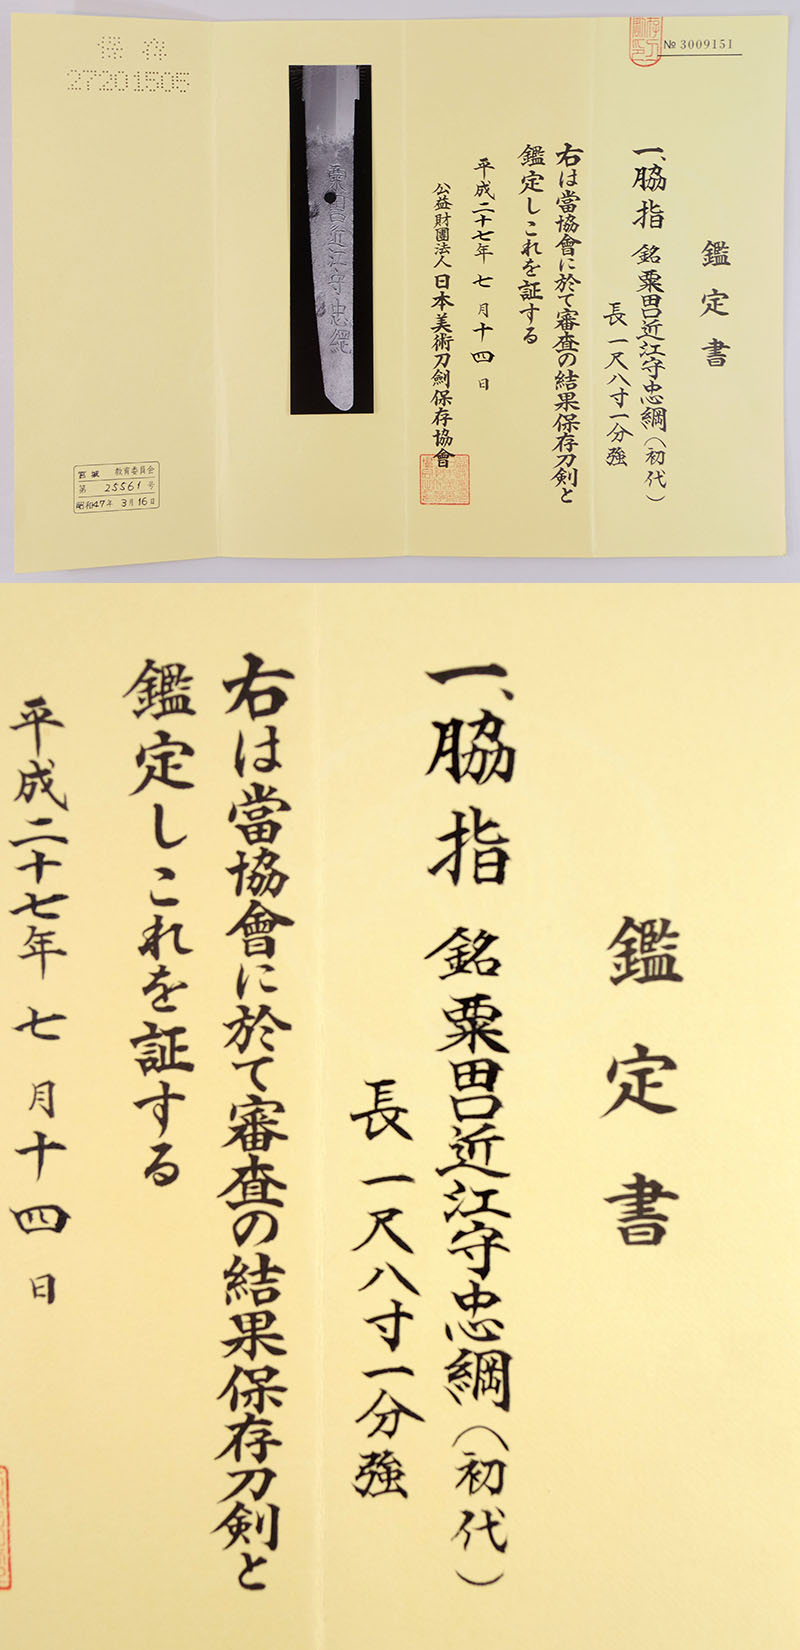 № 3009151
鑑定書
一、脇指 銘 粟田口近江守忠綱（初代）
長 一尺八寸一分強
右は當協會に於て審査の結果保存刀剣と
鑑定しこれを証する
平成二十七年 七月十四日
公益財團法人 日本美術刀劍保存協會
粟田口近江守忠綱
保存
27201505
宮城 教育委員会
第 25561 号
昭和47年 3月16日
鑑定書
一、脇指 銘 粟田口近江守忠綱（初代）
長 一尺八寸一分強
右は當協會に於て審査の結果保存刀剣と
鑑定しこれを証する
平成二十七年 七月十四日